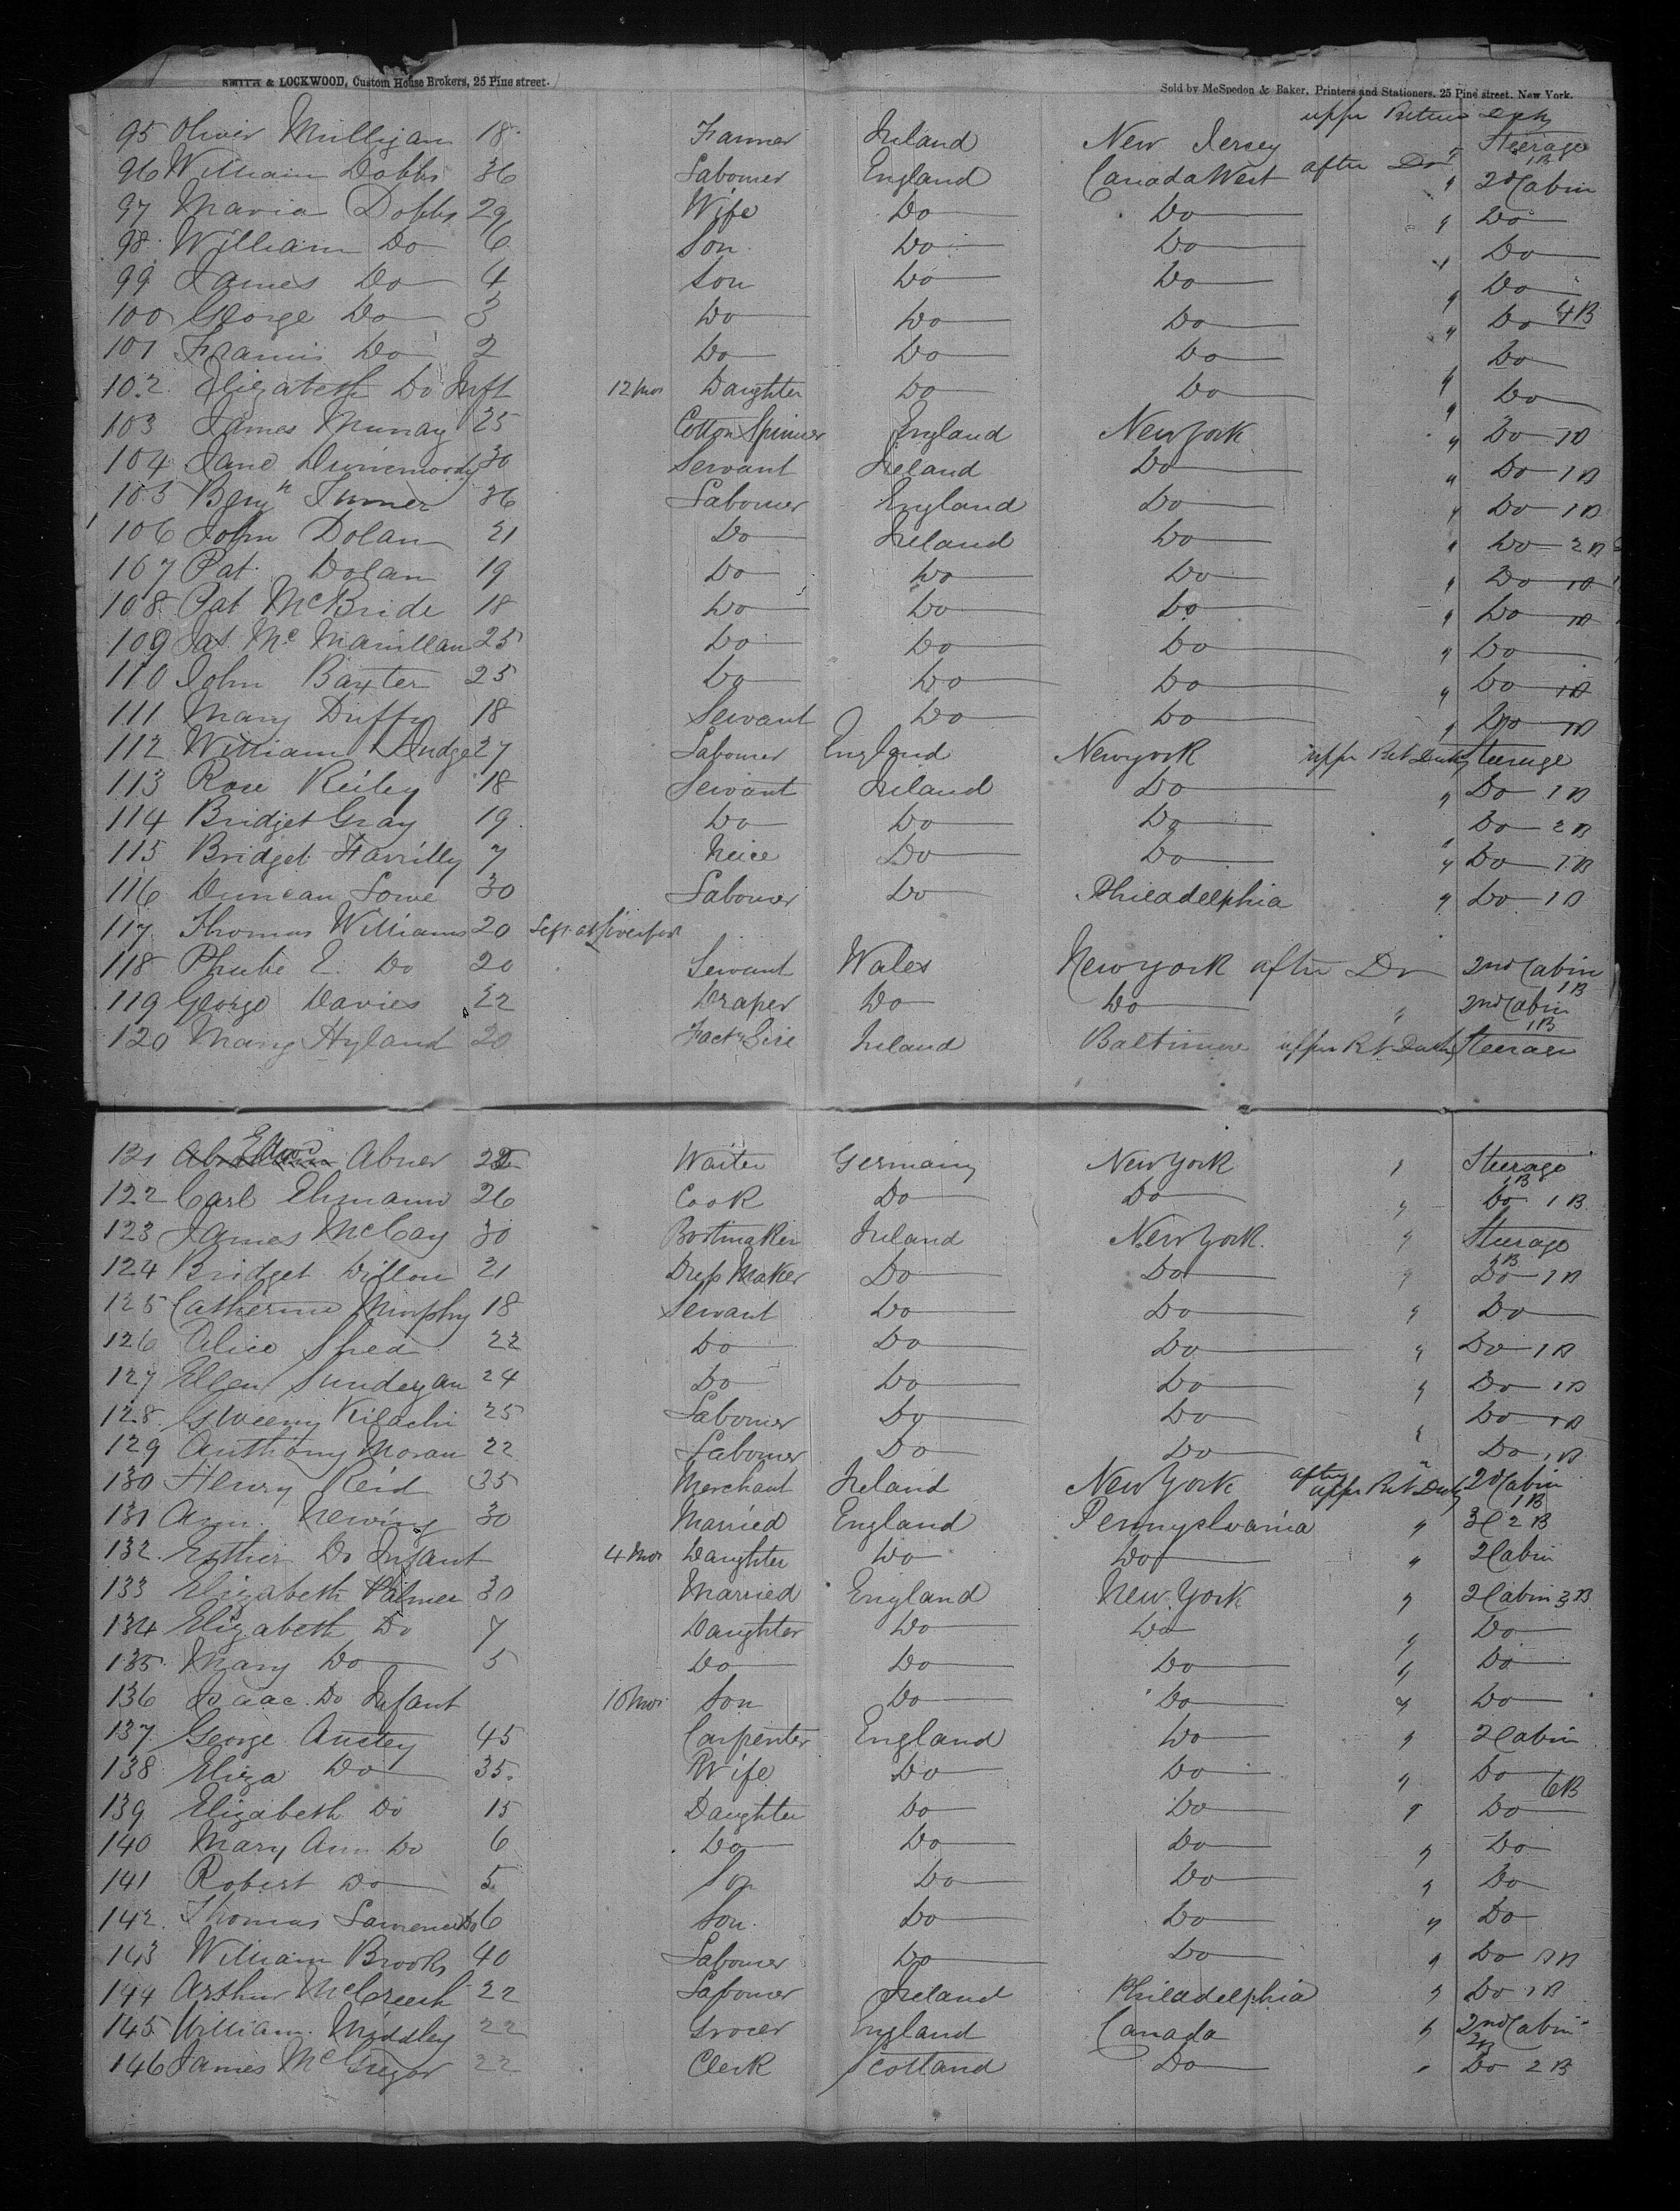 SMITH & LOCKWOOD, Custom House Brokers, 25 Pine street.
Sold by McSpedon & Baker, Printers and Stationers, 25 Pine street, New York.
upper Betwn Decks
95 Oliver Mulligan 18 Farmer Ireland New Jersey " Steerage 1B
96 William Dobbs 36 Labourer England Canada West after Do " 2d Cabin
97 Maria Dobbs 29 Wife Do Do " Do
98 William Do 6 Son Do Do " Do
99 James Do 4 Son Do Do " Do
100 George Do 3 Do Do Do " Do 4B
101 Francis Do 2 Do Do Do " Do
102 Elizabeth Do Inft 12 mos Daughter Do Do " Do
103 James Murray 25 Cotton Spinner England New York " Do 1B
104 Jane 30 Servant Ireland Do " Do 1B
105 Benjn Turner 36 Labourer England Do " Do 1B
106 John Dolan 21 Do Ireland Do " Do 2B
107 Pat Dolan 19 Do Do Do " Do 1B
108 Pat McBride 18 Do Do Do " Do 1B
109 Jas Mc Manillan 25 Do Do Do " Do
110 John Baxter 25 Do Do Do " Do 1B
111 Mary Duffy 18 Servant Do Do " Do 1B
112 William Dudge 27 Labourer England New york upper Bet Decks Steerage
113 Rose Reiley 18 Servant Ireland Do " Do 1B
114 Bridget Gray 19 Do Do Do " Do 2B
115 Bridget Farrilly 7 Neice Do Do " Do 1B
116 Duncan Lowe 30 Labourer Do Philadelphia " Do 1B
117 Thomas Williams 20 Left at Liverpool
118 Phebe E. Do 20 Servant Wales New york after Do 2nd Cabin 1B
119 George Davies 22 Draper Do Do " 2nd Cabin 1B
120 Mary Hyland 20 Facty Girl Ireland Baltimore upper Bt Decks Steerage
121 Edwd Abner 22 Waiter Germany New York " Steerage 1B
122 Carl Ehmann 26 Cook Do Do " Do 1B
123 James McCay 30 Bootmaker Ireland New York " Steerage 1B
124 Bridget Dillon 21 Dress Maker Do Do " Do 1B
125 Catherine Murphy 18 Servant Do Do " Do
126 Alice Shea 22 Do Do Do " Do 1B
127 Ellen Sundegan 24 Do Do Do " Do 1B
128 Kilachi 25 Labourer Do Do " Do 1B
129 Anthony Moran 22 Labourer Do Do " Do 1B
130 Henry Reid 35 Merchant Ireland New York after upper Bet Decks 2d Cabin 1B
131 Ann Newing 30 Married England Pennyslvania " 2C 2B
132 Esther Do Infant 4 mos Daughter Do Do " 2 Cabin
133 Elizabeth Palmer 30 Married England New York " 2 Cabin 3B
134 Elizabeth Do 7 Daughter Do Do " Do
135 Mary Do 5 Do Do Do " Do
136 Isaac Do Infant 10 mos Son Do Do " Do
137 George Austey 45 Carpenter England Do " 2 Cabin
138 Eliza Do 35 Wife Do Do " Do 6B
139 Elizabeth Do 15 Daughter Do Do " Do
140 Mary Ann Do 6 Do Do Do " Do
141 Robert Do 5 Son Do Do " Do
142 Thomas Lawrence Do 6 Son Do Do " Do
143 William Brooks 40 Labourer Do Do " Do 1B
144 Arthur McCreech 22 Labourer Ireland Philadelphia " Do 1B
145 William Middley 22 Grocer England Canada " 2nd Cabin 2B
146 James McGregor 22 Clerk Scotland Do " Do 2B